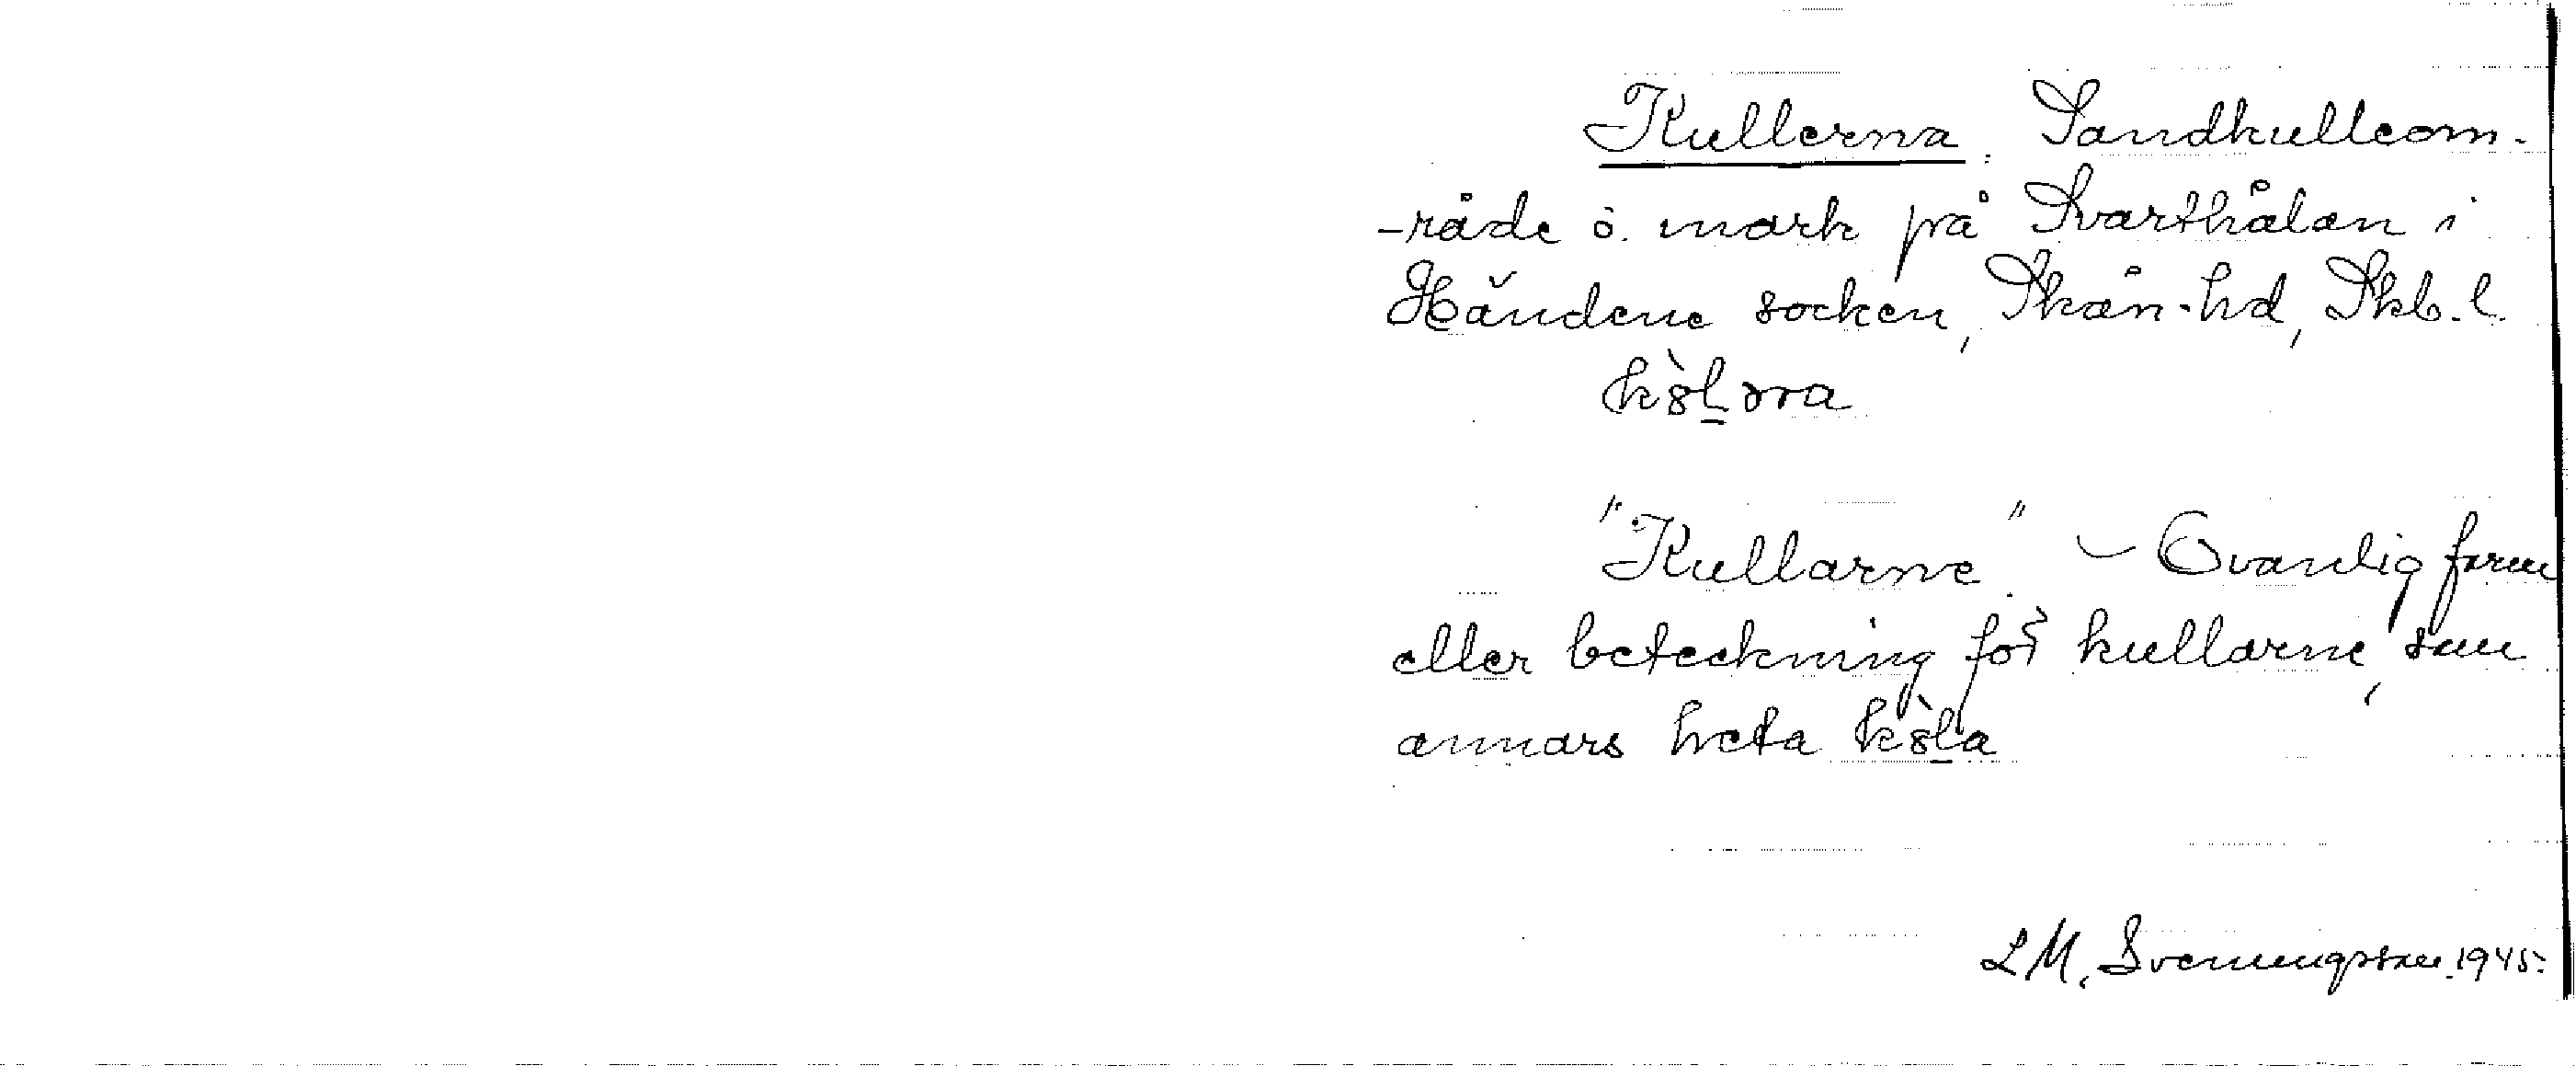 Kullerna. Sandkulleom-
-råde ö. mark på Svarthålan i
Händene socken, Skån. hd, Skb. l.
k8̀l̠ɔra
"Kullarne" – Ovanlig form
eller beteckning för kullarne, som
annars heta k8̀l̠a
L M. Svenungsson 1945.